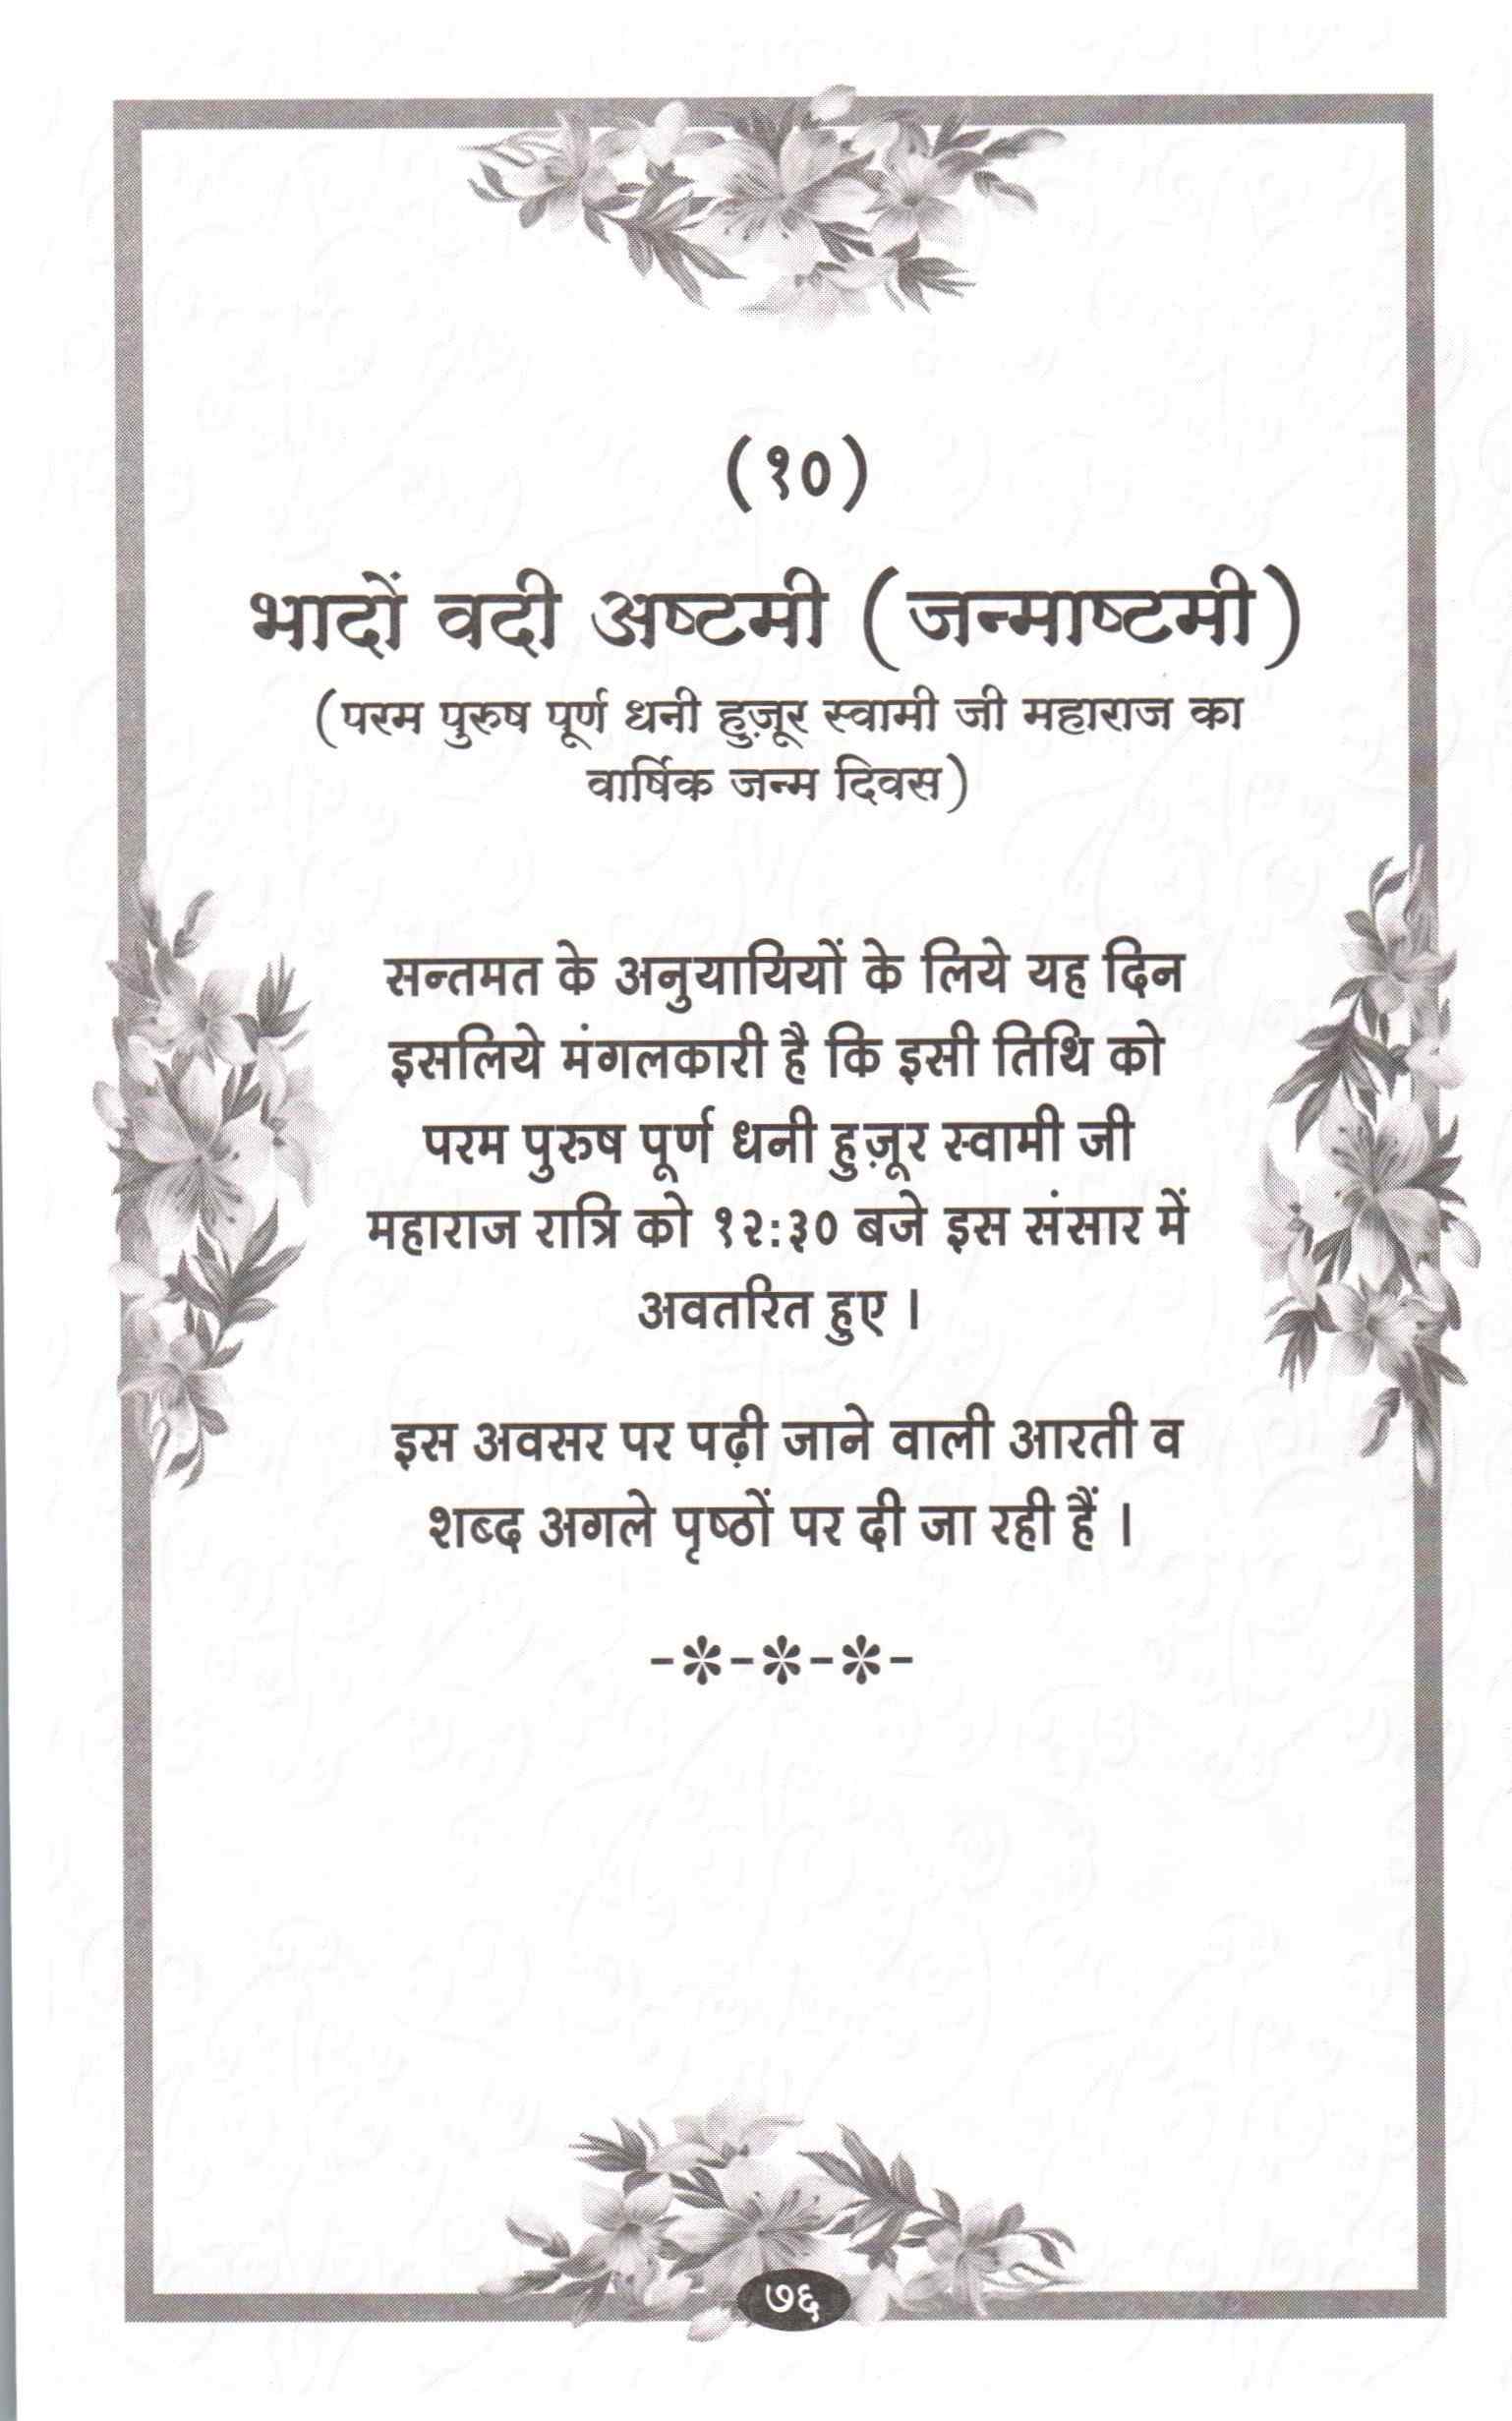 (१०)
भादों वदी अष्टमी (जन्माष्टमी)
(परम पुरुष पूर्ण धनी हुज़ूर स्वामी जी महाराज का
वार्षिक जन्म दिवस)
सन्तमत के अनुयायियों के लिये यह दिन
इसलिये मंगलकारी है कि इसी तिथि को
परम पुरुष पूर्ण धनी हुज़ूर स्वामी जी
महाराज रात्रि को १२:३० बजे इस संसार में
अवतरित हुए ।
इस अवसर पर पढ़ी जाने वाली आरती व
शब्द अगले पृष्ठों पर दी जा रही हैं ।
-*-*-*-
७६